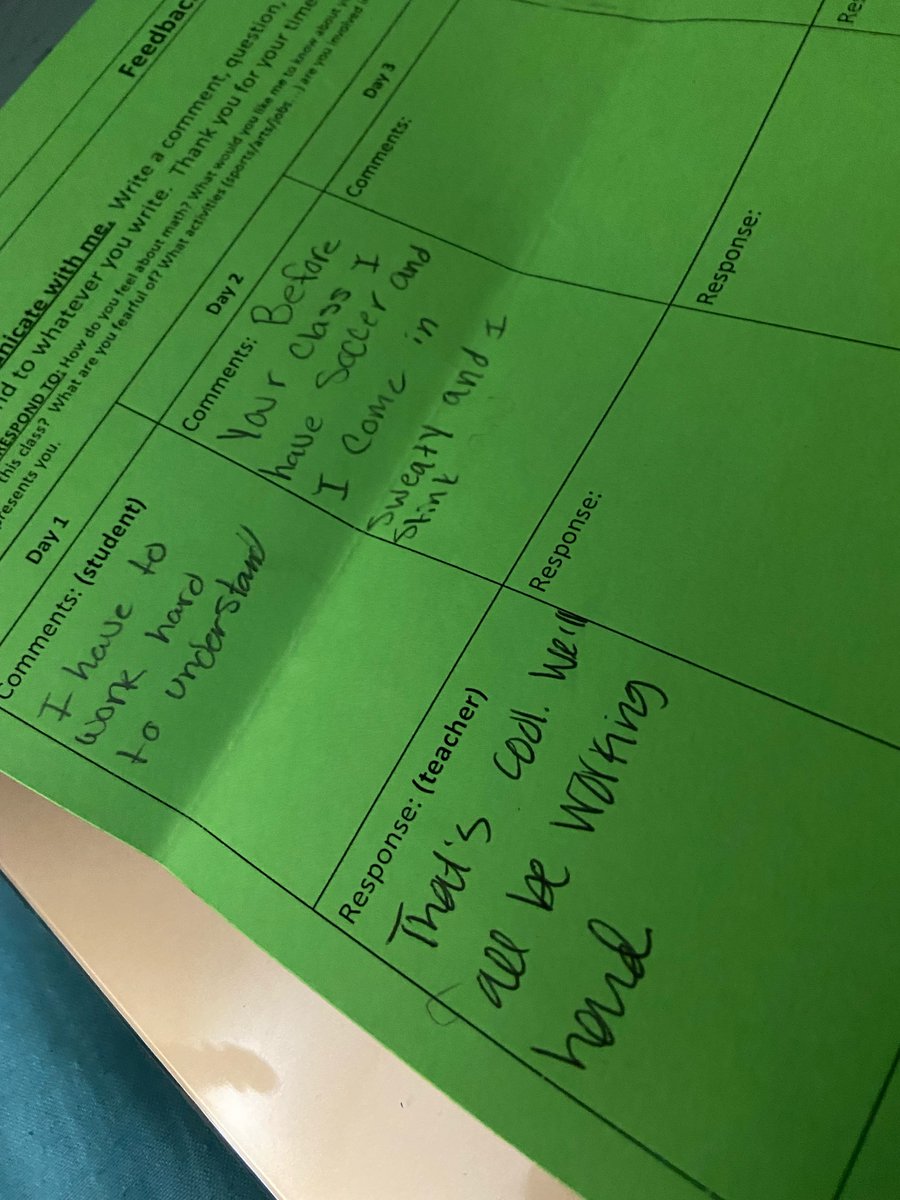 Feedbac
nicate with me. Write a comment, question,
nd to whatever you write. Thank you for your time
RESPOND TO: How do you feel about math? What would you like me to know about
this class? What are you fearful of? What activities (sports/arts/jobs...) are you involved
presents you.
Day 1
Day 2
Day 3
Comments: (student)
I have to
work hard
to understand
Comments: Before
Your class I
have soccer and
I come in
sweaty and I
stink
Comments:
Response: (teacher)
That's cool. We'll
all be working
hard
Response:
Response:
Re